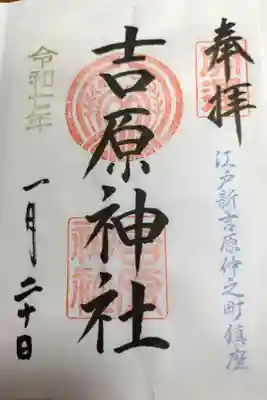 奉拝
江戸新吉原仲之町鎮座
吉原神社
令和七年
一月二十日